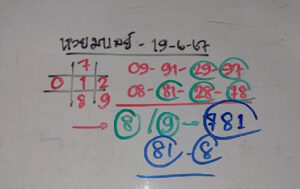 หวยมาเลย์ - 19-6-67
7 09 - 91 - 29 - 97
0 1 2 08 - 81 - 28 - 78
8 9
→ 8 / 9 - 781
81 - 8